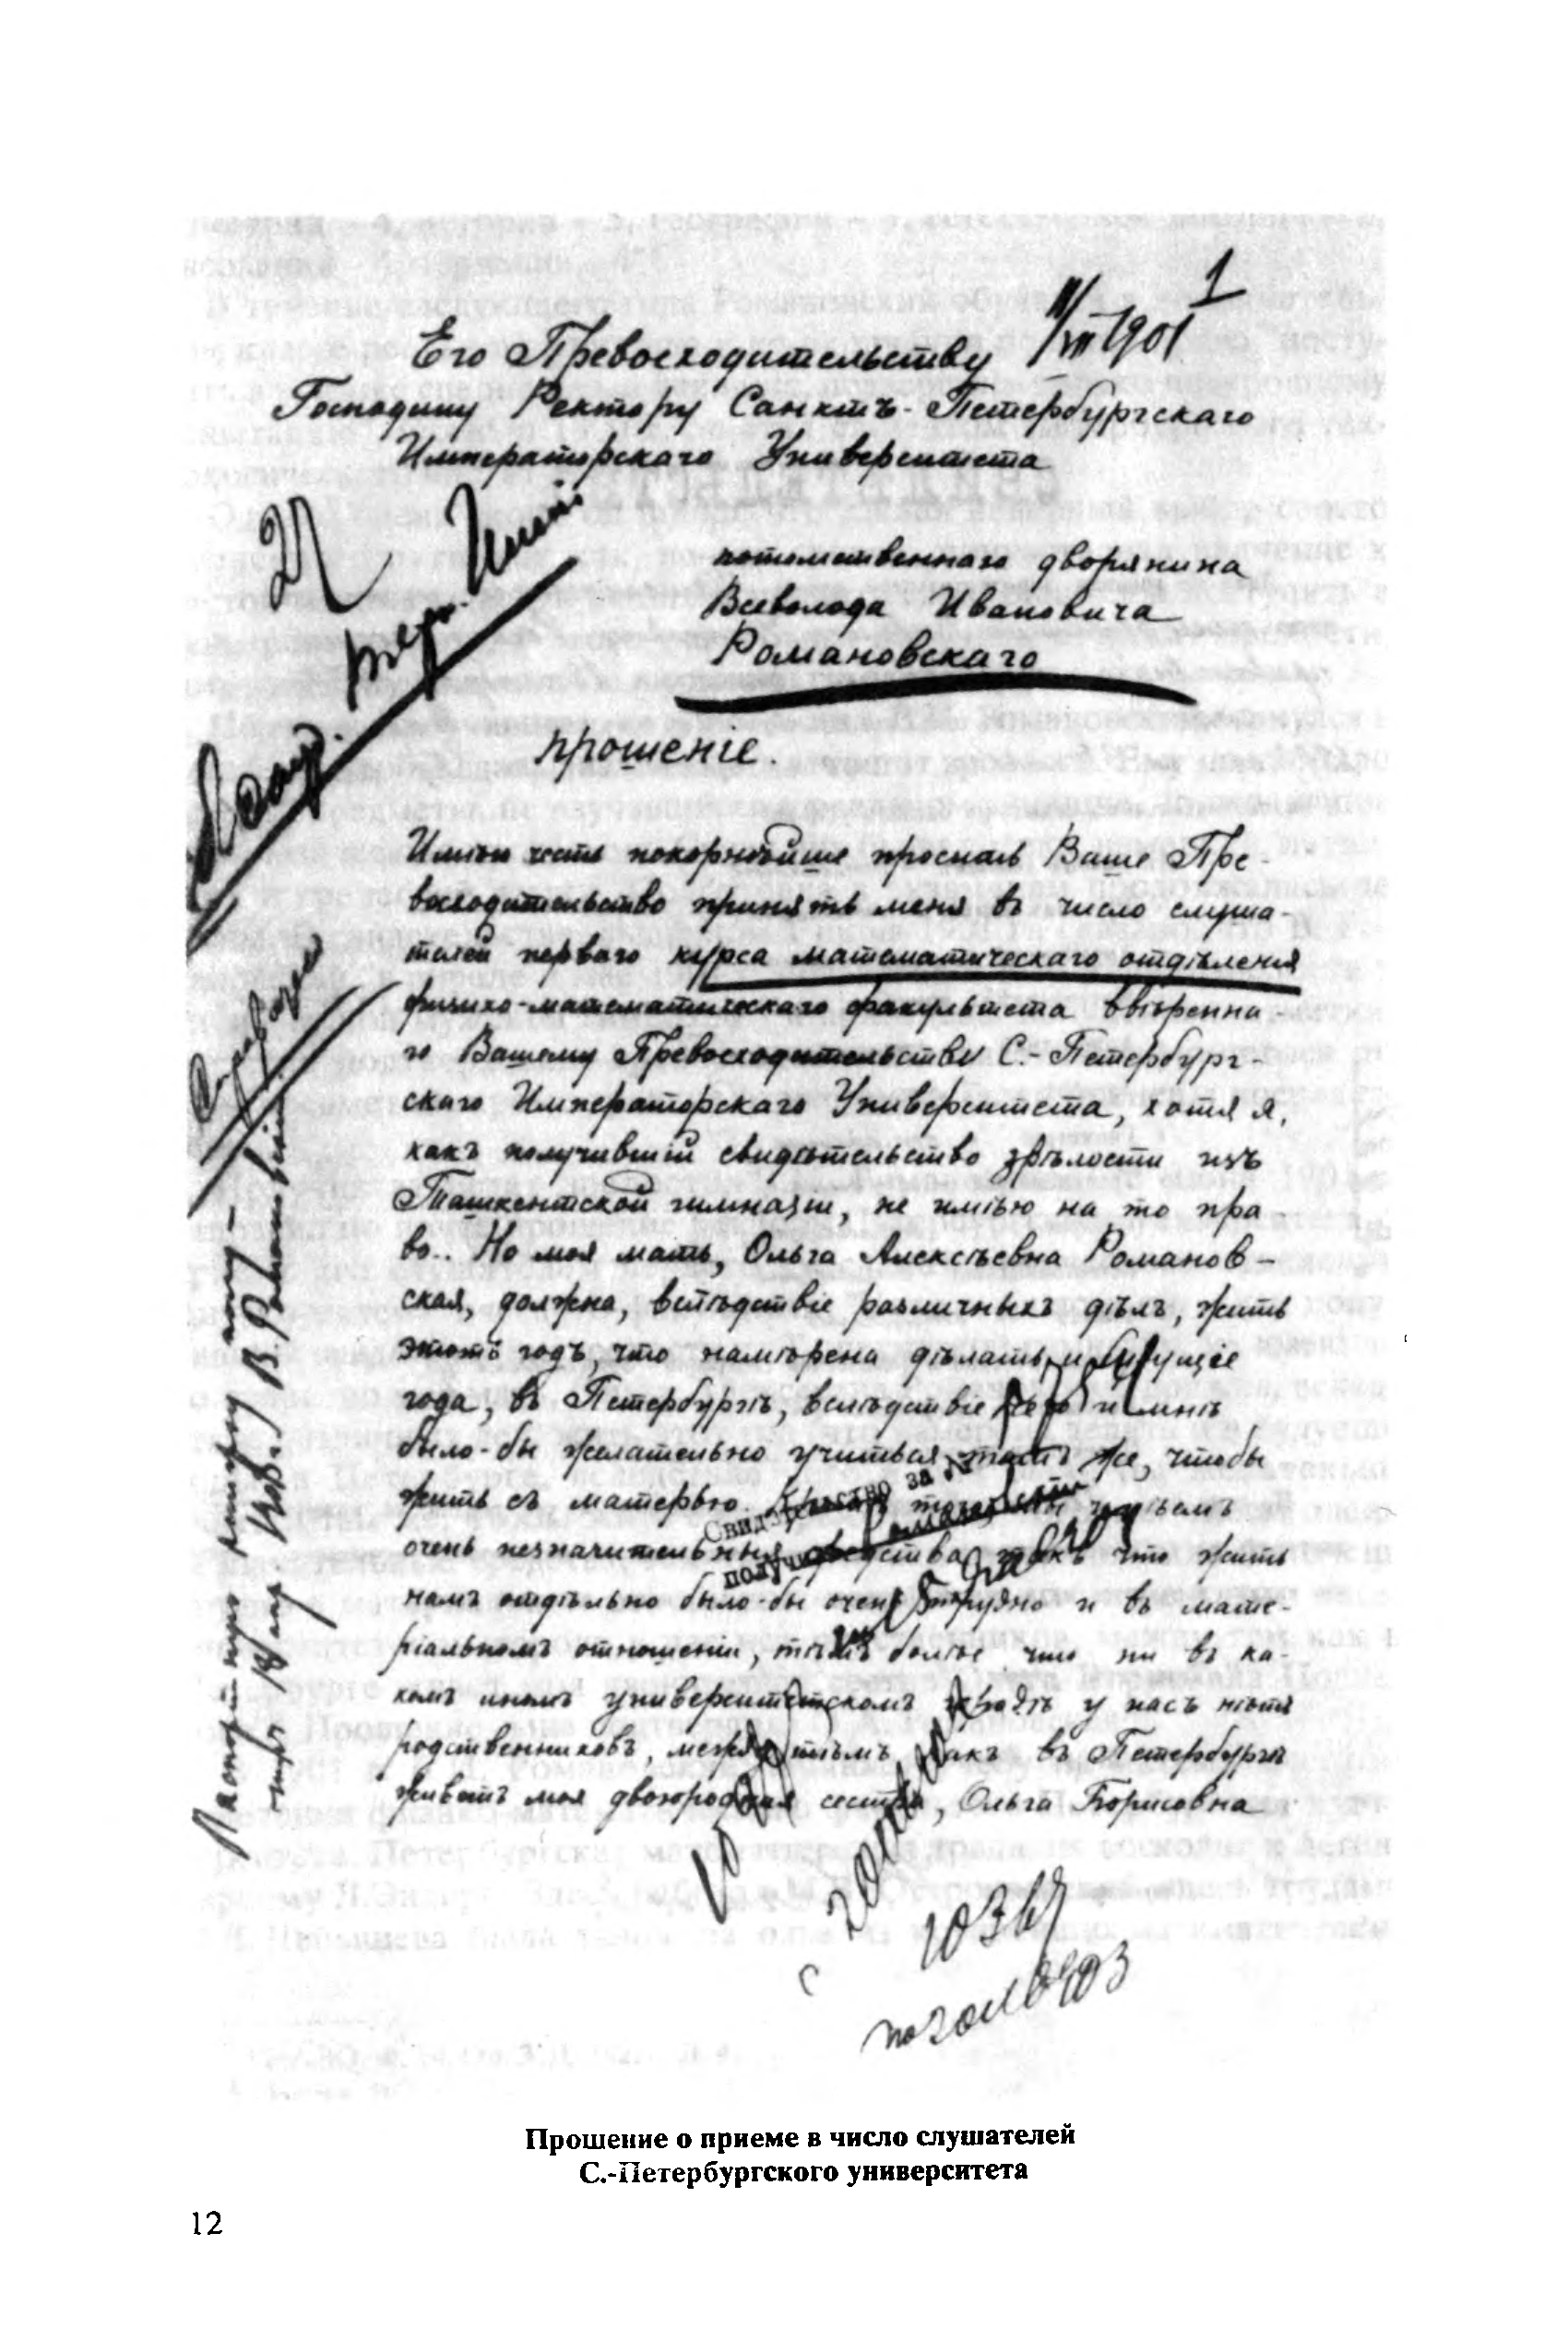 1
II/VIII 1901
Его Превосходительству
Господину Ректору Санктъ-Петербургскаго
Императорскаго Университета
потомственнаго дворянина
Всеволода Ивановича
Романовскаго
прошеніе.
Имѣю честь покорнѣйше просить Ваше Пре-
восходительство принять меня въ число слуша-
телей перваго курса математическаго отдѣленія
физико-математическаго факультета ввѣренна-
го Вашему Превосходительству С.-Петербург-
скаго Императорскаго Университета, хотя я,
какъ получившій свидѣтельство зрѣлости изъ
Ташкентской гимназіи, не имѣю на то пра-
во.. Но моя мать, Ольга Алексѣевна Романов-
ская, должна, вслѣдствіе различныхъ дѣлъ, жить
этотъ годъ, что намѣрена дѣлать и будущіе
года, въ Петербургѣ, вслѣдствіе чего и мнѣ
было-бы желательно учиться тамъ же, чтобы
жить съ матерью. Кромѣ того, мы имѣемъ
очень незначительныя средства, такъ что жить
намъ отдѣльно было-бы очень трудно и въ мате-
ріальномъ отношеніи, тѣмъ болѣе что ни въ ка-
комъ иномъ университетскомъ городѣ у насъ нѣтъ
родственниковъ, между тѣмъ, какъ въ Петербургѣ
живетъ моя двоюродная сестра, Ольга Борисовна
Свидѣтельство за №
получилъ
Прошение о приеме в число слушателей
С.-Петербургского университета
12